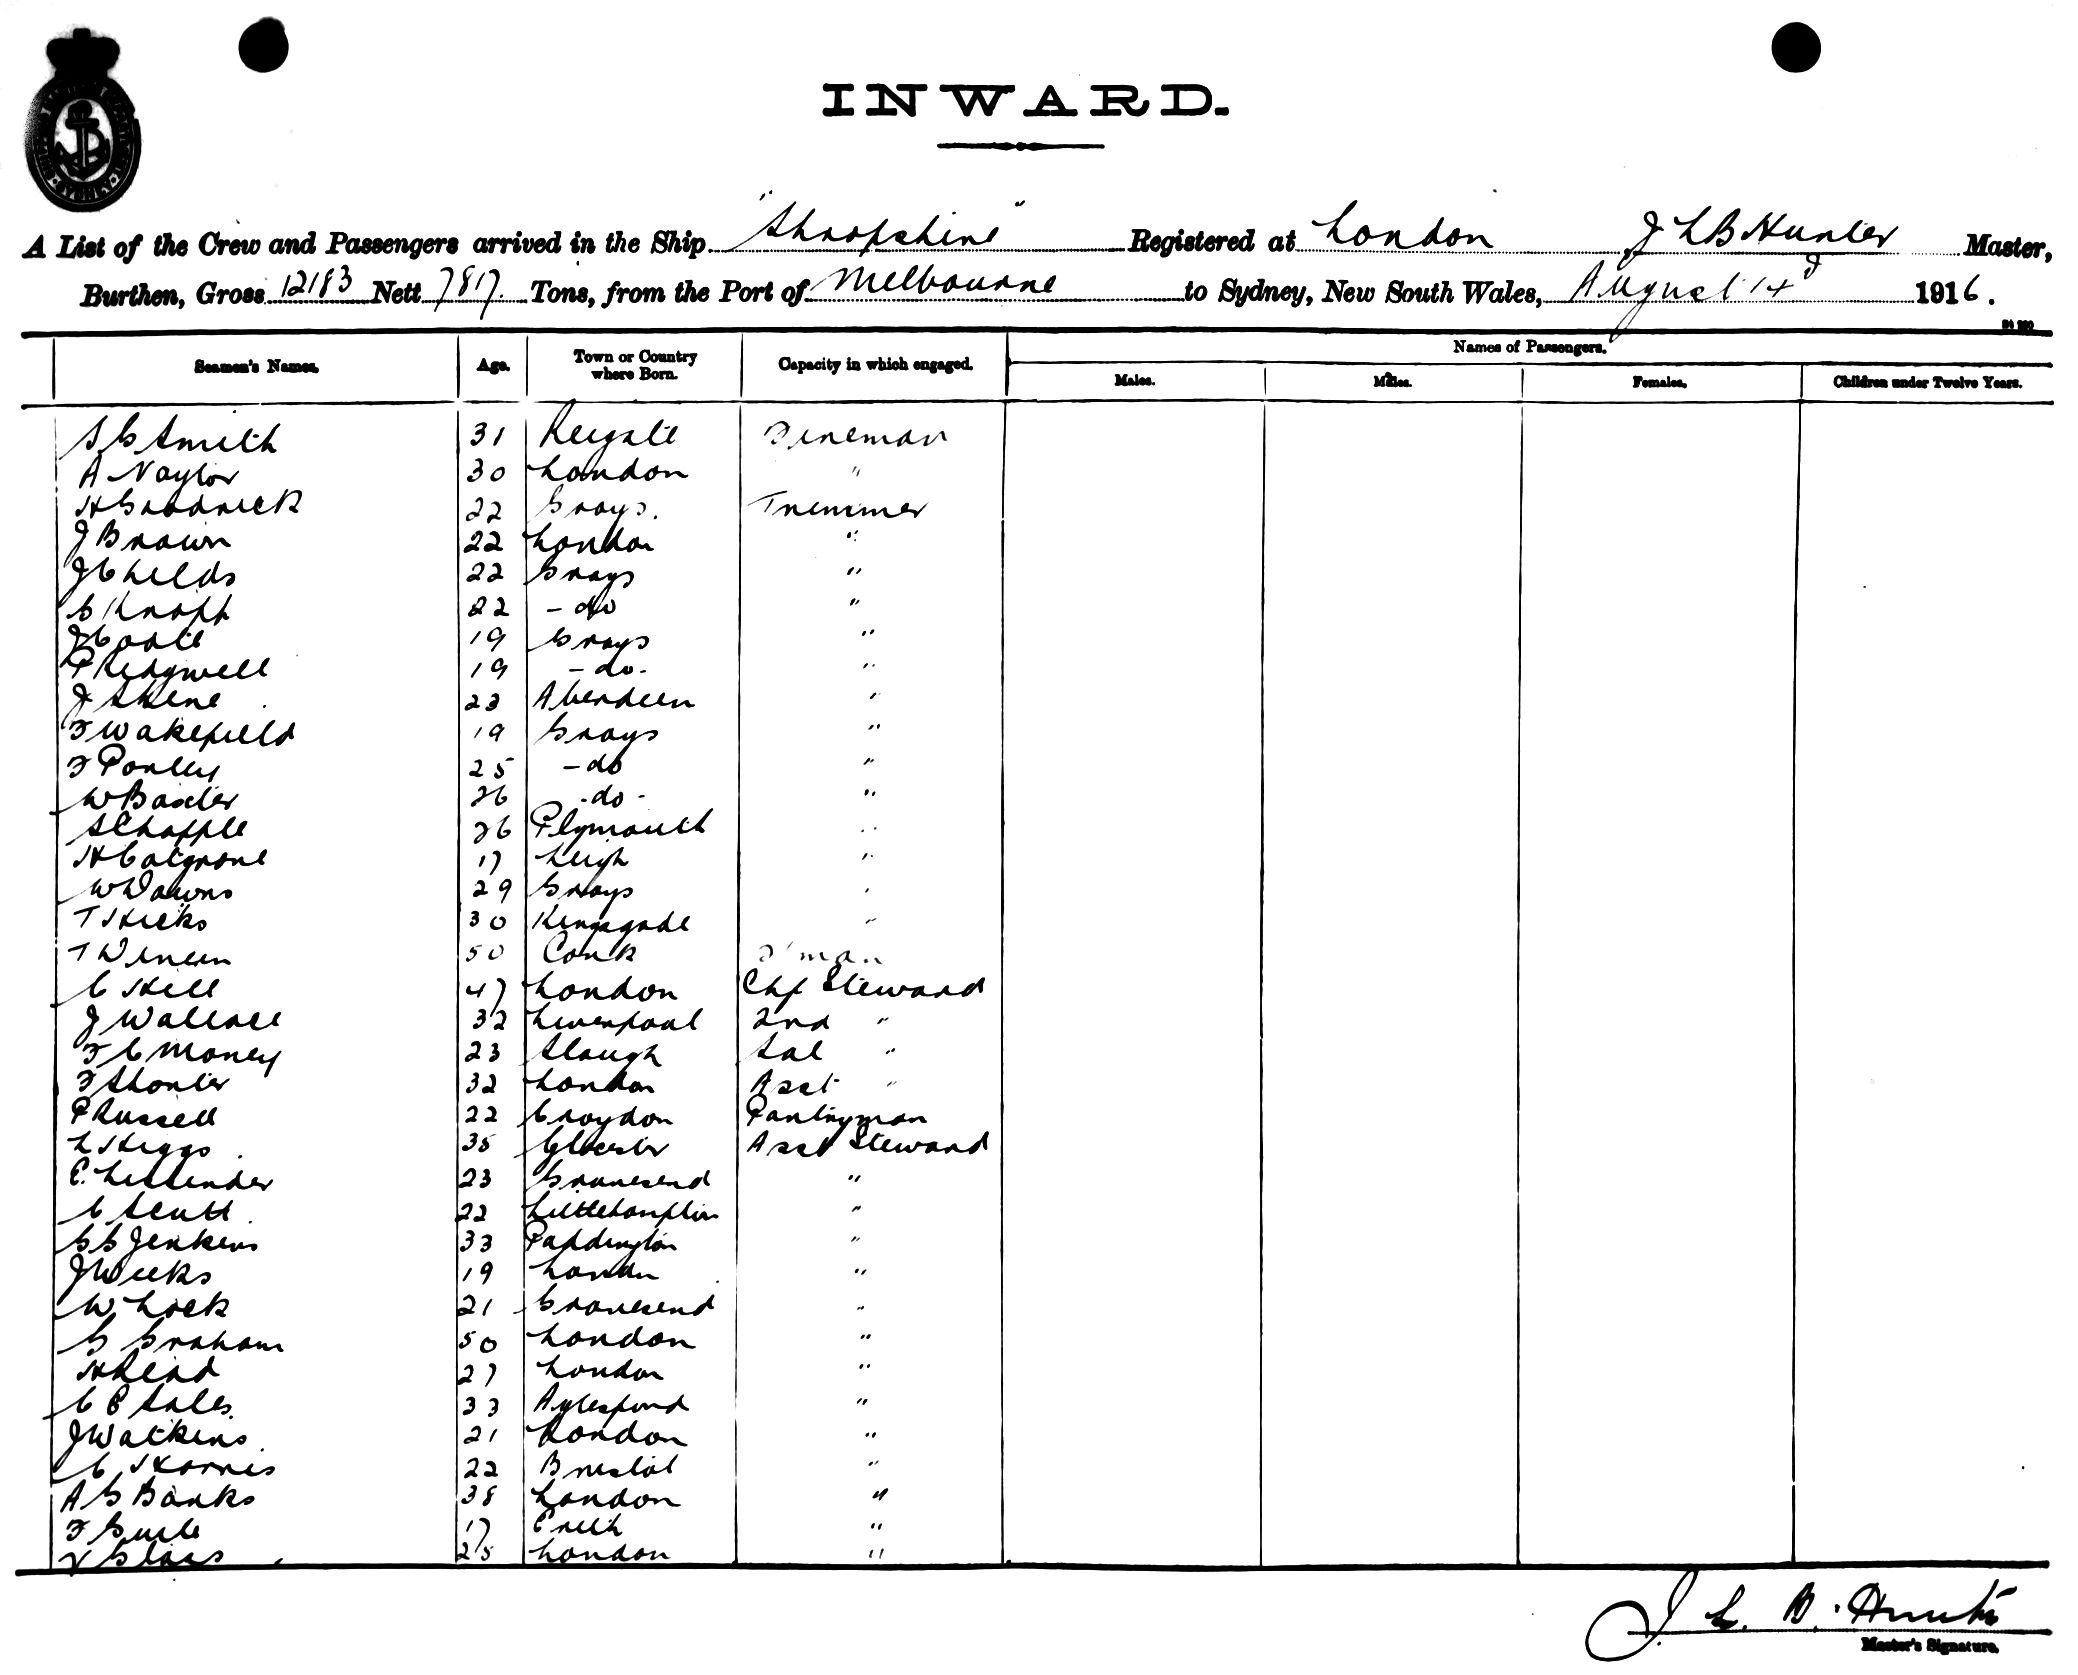 INWARD.
A List of the Crew and Passengers arrived in the Ship "Shropshire" Registered at London J L B Hunter Master,
Burthen, Gross 12183 Nett 7817 Tons, from the Port of Melbourne to Sydney, New South Wales, August 14 1916.
Names of Passengers.
Seamen's Names. Age. Town or Country where Born. Capacity in which engaged. Males. Males. Females. Children under Twelve Years.
Smith 31 Reigate Fireman
A Naylor 30 London "
H Goodrick 22 Grays. Trimmer
J Brown 22 London "
J Childs 22 Grays "
G Knapp 22 - do "
J Coote 19 Grays "
P Ridgwell 19 - do - "
J Skene 23 Aberdeen "
F Wakefield 19 Grays "
F Porley 25 - do "
W Baxter 26 - do - "
S Chapple 26 Plymouth "
H Colgrove 17 Leigh "
W Downs 29 Grays "
T Hicks 30 "
T 50 Cork F'man
C Hill 47 London Chf Steward
J Wallace 32 Liverpool 2nd "
F C Money 23 Slough Sal "
F Shorter 32 London Asst "
P Russell 22 Croydon Pantryman
L Higgs 35 Glocester Asst Steward
E. 23 Gravesend "
C Scutt 22 Littlehampton "
G G Jenkins 33 Paddington "
J Weeks 19 London "
W Lock 21 Gravesend "
G Graham 50 London "
H Read 27 London "
C E Sales 33 Aylesford "
J Watkins 21 London "
C Harris 22 Bristol "
A G Banks 38 London "
F 17 Erith "
Glass 25 London "
J. L. B. Hunter
Master's Signature.